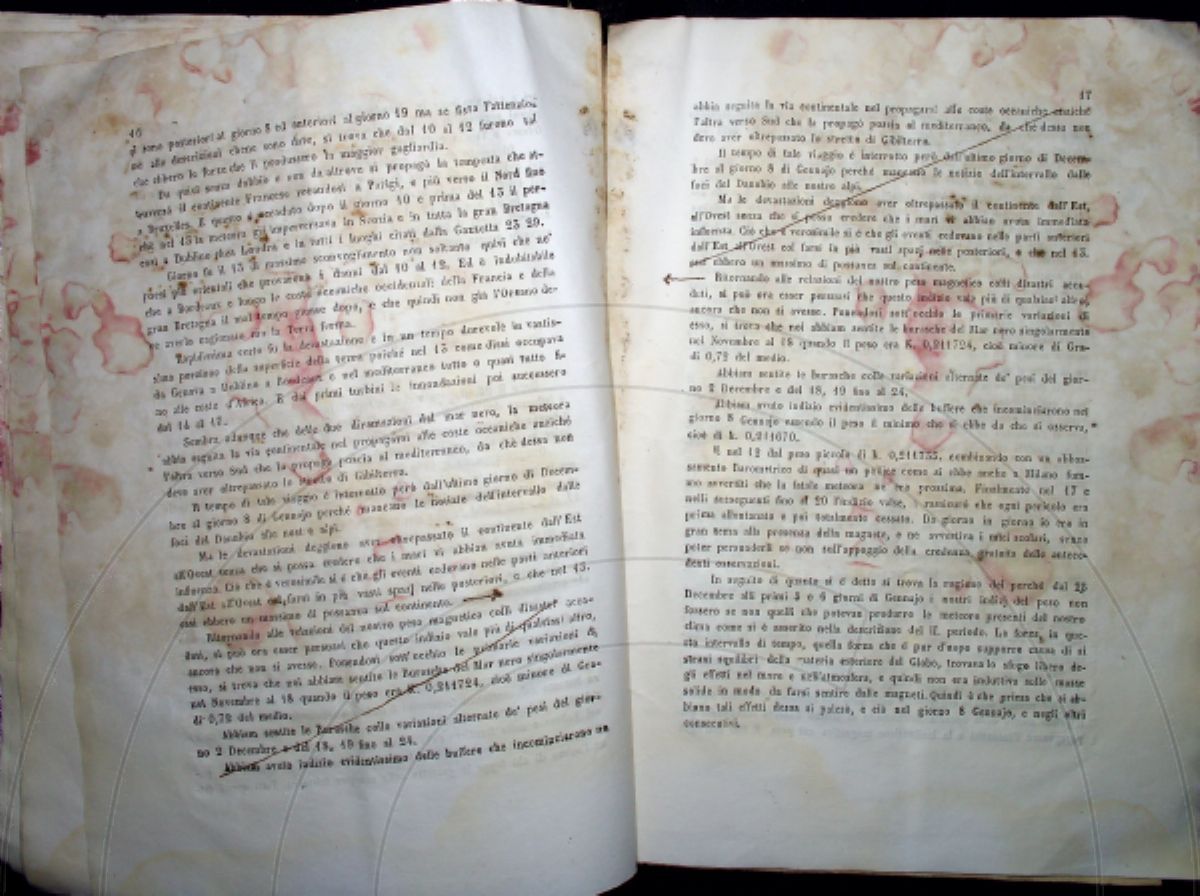 46
si sono posteriori al giorno 8 ed anteriori al giorno 19 ma se fissa l'attenzio-
ne alle descrizioni come sono date, si trova che dal 10 al 12 furono sul
che ebbero le forze che li produssero la maggior gagliardia.
Da quivi senza dubbio e non da altrove si propagò la tempesta che at-
traversò il continente Francese recandosi a Parigi, e più verso il Nord fino
a Bruxelles. E questo è accaduto dopo il giorno 10 e prima del 13 il per-
chè nel 13 la meteora già imperversava in Scozia e in tutta la gran Bretagna
così a Dublino che Londra e in tutti i luoghi citati dalla Gazzetta 23 29.
Giorno fu il 13 di massimo sconvolgimento non soltanto quivi che ne'
paesi più orientali che provarono i danni dal 10 al 12. Ed è indubitabile
che a Bordeaux e lungo le coste oceaniche occidentali della Francia e della
gran Bretagna il mal tempo giunse dopo, e che quindi non già l'Oceano de-
ve averlo cagionato ma la Terra ferma.
Rapidissima certo fu la devastazione e in un tempo durevole in vastis-
sima porzione della superficie della terra poichè nel 13 come dissi occupava
da Genova a Dublino a Bordeaux e nel mediterraneo tutto o quasi tutto fi-
no alle coste d'Africa. E dai primi turbini le innondazioni poi successero
dal 14 al 17.
Sembra adunque che delle due diramazioni dal mar nero, la meteora
abbia seguita la via continentale nel propagarsi alle coste oceaniche anzichè
l'altra verso Sud che la propagò poscia al mediterraneo, da chè dessa non
deve aver oltrepassato lo stretto di Gibilterra.
Il tempo di tale viaggio è interrotto però dall'ultimo giorno di Decem-
bre al giorno 8 di Gennajo perchè mancano le notizie dell'intervallo dalle
foci del Danubio alle nostre alpi.
Ma le devastazioni deggiono aver oltrepassato il continente dall'Est
all'Ovest senza che si possa credere che i mari vi abbian avuta immediata
influenza. Ciò che è verosimile si è che gli eventi cedevano nelle parti anteriori
dall'Est all'Ovest col farsi in più vasti spazj nelle posteriori, e che nel 13.
essi ebbero un massimo di possanza sul continente.
Ritornando alle relazioni del nostro peso magnetico colli disastri acca-
duti, si può ora esser persuasi che questo indizio vale più di qualsiasi altro,
ancora che non si avesse. Ponendosi sott'occhio le primarie variazioni di
esso, si trova che noi abbiam sentite le burasche del Mar nero singolarmente
nel Novembre al 18 quando il peso era K. 0,211724, cioè minore di Gra-
di 0,72 del medio.
Abbiam sentite le Burasche colle variazioni alternate de' pesi del gior-
no 2 Decembre e del 18, 19 fino al 24.
Abbiam avuto indizio evidentissimo delle buffere che incominciarono nel
17
abbia seguita la via continentale nel propagarsi alle coste oceaniche anzichè
l'altra verso Sud che la propagò poscia al mediterraneo, da chè dessa non
deve aver oltrepassato lo stretto di Gibilterra.
Il tempo di tale viaggio è interrotto però dall'ultimo giorno di Decem-
bre al giorno 8 di Gennajo perchè mancano le notizie dell'intervallo dalle
foci del Danubio alle nostre alpi.
Ma le devastazioni deggiono aver oltrepassato il continente dall'Est,
all'Ovest senza che si possa credere che i mari vi abbian avuta immediata
influenza. Ciò che è verosimile si è che gli eventi cedevano nelle parti anteriori
dall'Est all'Ovest col farsi in più vasti spazj nelle posteriori, e che nel 13.
essi ebbero un massimo di possanza sul continente.
Ritornando alle relazioni del nostro peso magnetico colli disastri acca-
duti, si può ora esser persuasi che questo indizio vale più di qualsiasi altro,
ancora che non si avesse. Ponendosi sott'occhio le primarie variazioni di
esso, si trova che noi abbiam sentite le burasche del Mar nero singolarmente
nel Novembre al 18 quando il peso era K. 0,211724, cioè minore di Gra-
di 0,72 del medio.
Abbiam sentite le Burasche colle variazioni alternate de' pesi del gior-
no 2 Decembre e del 18, 19 fino al 24.
Abbiam avuto indizio evidentissimo delle buffere che incominciarono nel
giorno 8 Gennajo essendo il peso il minimo che si ebbe da che si osserva,
cioè di k. 0,211670.
E nel 12 del peso piccolo di k. 0,211755, combinando con un abbas-
samento Barometrico di quasi un pollice come si ebbe anche a Milano fum-
mo avvertiti che la fatale meteora ne era prossima. Finalmente nel 17 e
nelli susseguenti fino al 20 l'indizio valse, a ravvisare che ogni pericolo era
prima allontanato e poi totalmente cessato. Da giorno in giorno io era in
gran tema alla presenza della magnete, e ne avvertiva i miei scolari, senza
poter persuaderli se non coll'appoggio della credenza, gratuita delle antece-
denti osservazioni.
In seguito di quanto si è detto si trova la ragione del perchè dal 25
Decembre alli primi 5 e 6 giorni di Gennajo i nostri indizj del peso non
fossero se non quelli che potevan produrre le meteore presenti del nostro
clima come si è asserito nella descrizione del II. periodo. Le forze, in que-
sto intervallo di tempo, quella forza che è pur d'uopo supporre causa di si
strani equilibri della materia esteriore del Globo, trovava lo sfogo libero de-
gli effetti nel mare e nell'atmosfera, e quindi non era induttiva sulle masse
solide in modo da farsi sentire dalle magneti. Quindi è che prima che si ab-
biano tali effetti dessa si palesa, e ciò nel giorno 8 Gennajo, e negli altri
consecutivi.